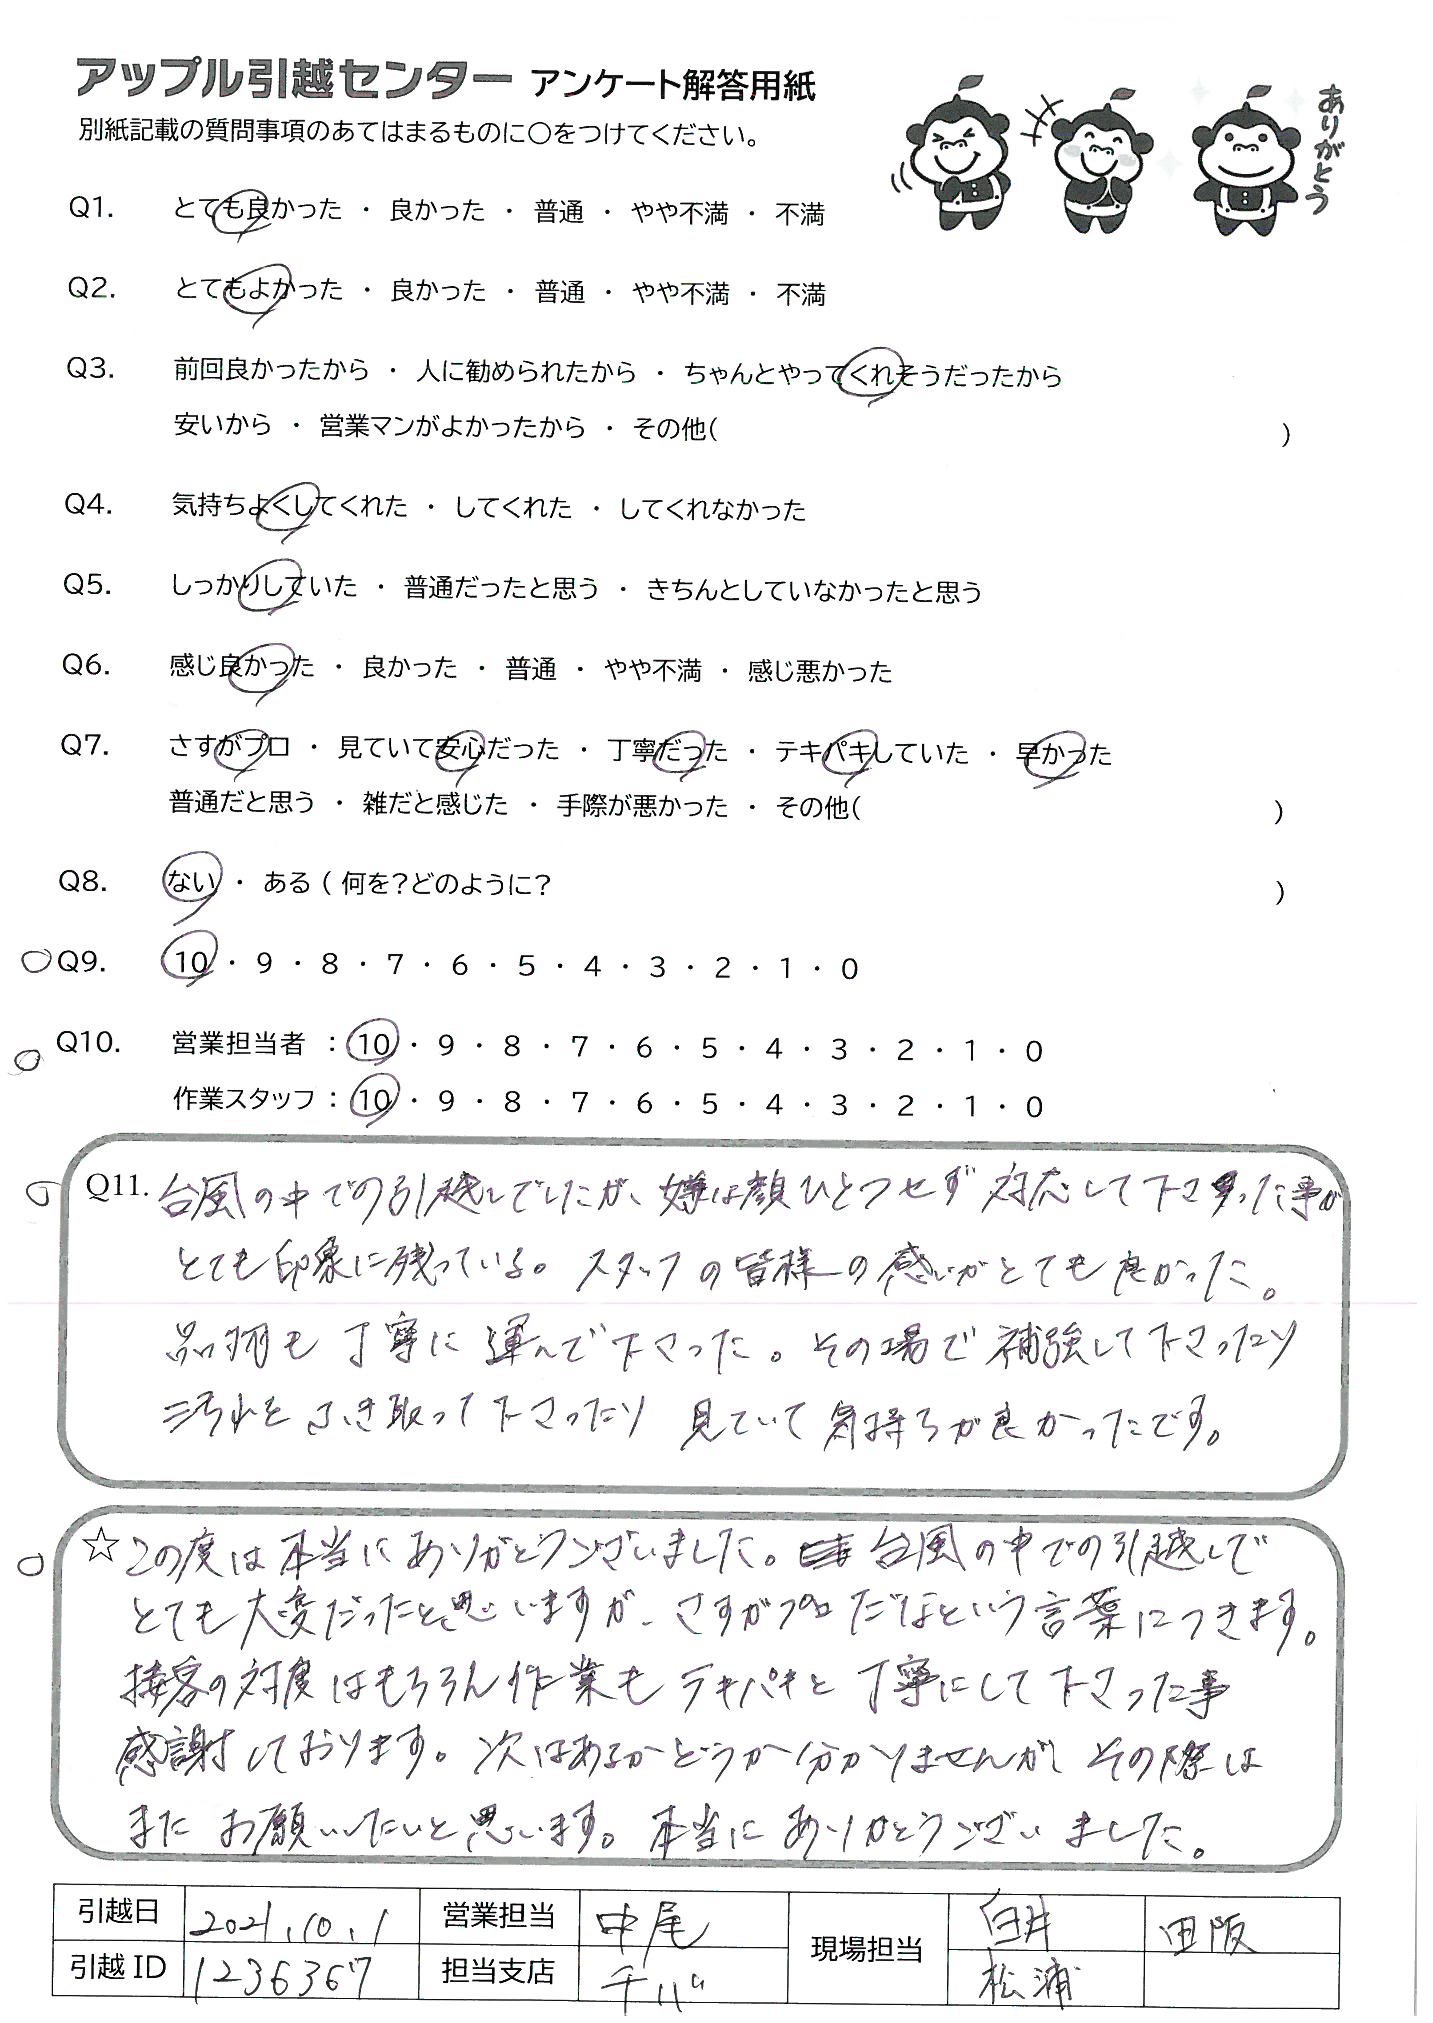 アップル引越センター アンケート解答用紙
ありがとう
別紙記載の質問事項のあてはまるものに○をつけてください。
Q1. とても良かった ・ 良かった ・ 普通 ・ やや不満 ・ 不満
Q2. とてもよかった ・ 良かった ・ 普通 ・ やや不満 ・ 不満
Q3. 前回良かったから ・ 人に勧められたから ・ ちゃんとやってくれそうだったから
安いから ・ 営業マンがよかったから ・ その他( )
Q4. 気持ちよくしてくれた ・ してくれた ・ してくれなかった
Q5. しっかりしていた ・ 普通だったと思う ・ きちんとしていなかったと思う
Q6. 感じ良かった ・ 良かった ・ 普通 ・ やや不満 ・ 感じ悪かった
Q7. さすがプロ ・ 見ていて安心だった ・ 丁寧だった ・ テキパキしていた ・ 早かった
普通だと思う ・ 雑だと感じた ・ 手際が悪かった ・ その他( )
Q8. ない ・ ある ( 何を?どのように? )
Q9. 10 ・ 9 ・ 8 ・ 7 ・ 6 ・ 5 ・ 4 ・ 3 ・ 2 ・ 1 ・ 0
Q10. 営業担当者 : 10 ・ 9 ・ 8 ・ 7 ・ 6 ・ 5 ・ 4 ・ 3 ・ 2 ・ 1 ・ 0
作業スタッフ : 10 ・ 9 ・ 8 ・ 7 ・ 6 ・ 5 ・ 4 ・ 3 ・ 2 ・ 1 ・ 0
Q11. 台風の中での引越しでしたが、嫌な顔ひとつせず 対応して下さった事が
とても印象に残っている。スタッフの皆様の感じがとても良かった。
品物も丁寧に運んで下さった。その場で補強して下さったり
汚れをふき取って下さったり 見ていて気持ちが良かったです。
☆この度は本当にありがとうございました。台風の中での引越しで
とても大変だったと思いますが、さすがプロだなという言葉につきます。
接客の対度はもちろん作業もテキパキと丁寧にして下さった事
感謝しております。次はあるかどうか分かりませんが その際は
また お願いしたいと思います。本当に ありがとうございました。
引越日 2021.10.1 営業担当 中尾 現場担当 白井 田阪
引越 ID 1236367 担当支店 千バ 松浦